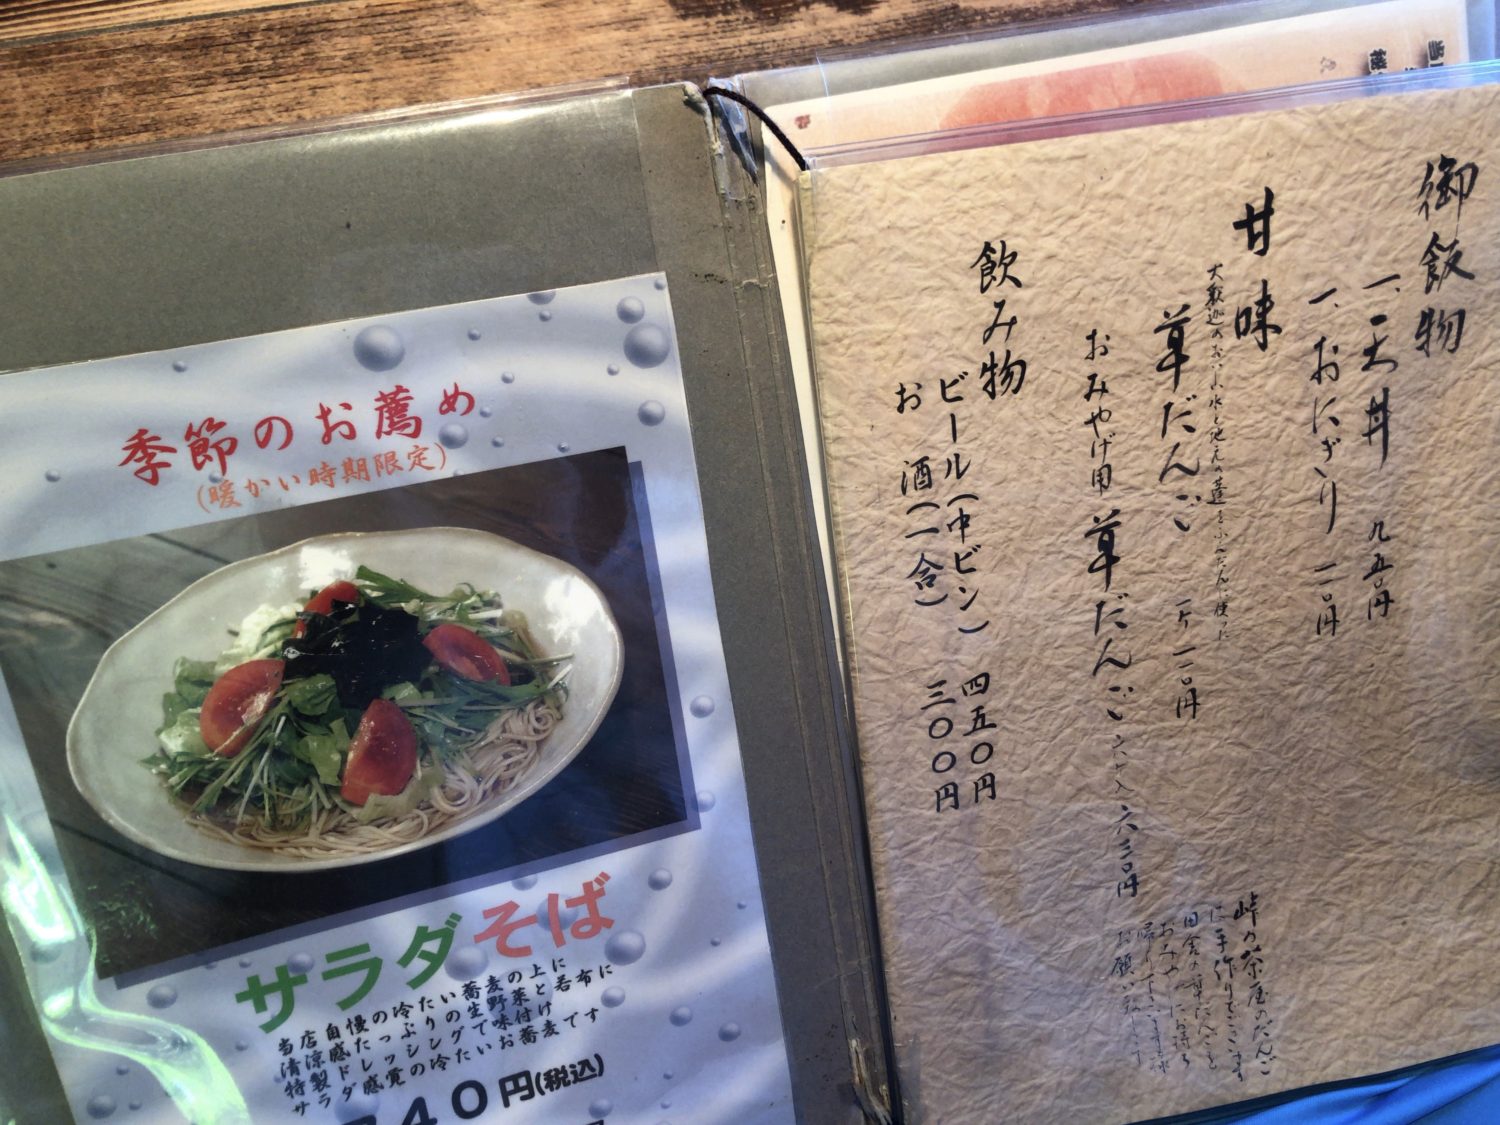 季節のお薦め
(暖かい時期限定)
サラダそば
当店自慢の冷たい蕎麦の上に
清涼感たっぷりの生野菜と若布に
特製ドレッシングで味付け
サラダ感覚の冷たいお蕎麦です
40円(税込)
御飯物
一、天丼 九五〇円
一、おにぎり 一一〇円
甘味
草だんご 一ケ 一一〇円
おみやげ用 草だんご 六ケ入 六三〇円
飲み物
ビール(中ビン) 四五〇円
お酒(一合) 三〇〇円
峠の茶屋のだんご
は手作りでございます
田舎の草だんごを
おみやにお持ち
お願い致します